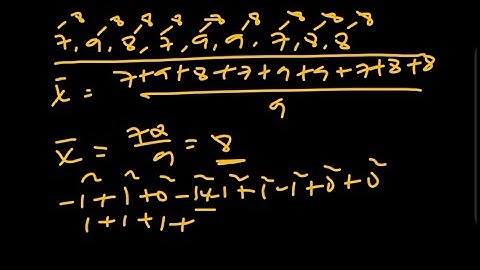 -8 -8 -8 -8 -8 -8 -8 -8 -8
7, 9, 8, 7, 9, 9, 7, 8, 8
x̄ = 7+9+8+7+9+9+7+8+8
9
x̄ = 72/9 = 8
-1² + 1² + 0² - 1² + 1² + 1² - 1² + 0² + 0²
1 + 1 + 1 +